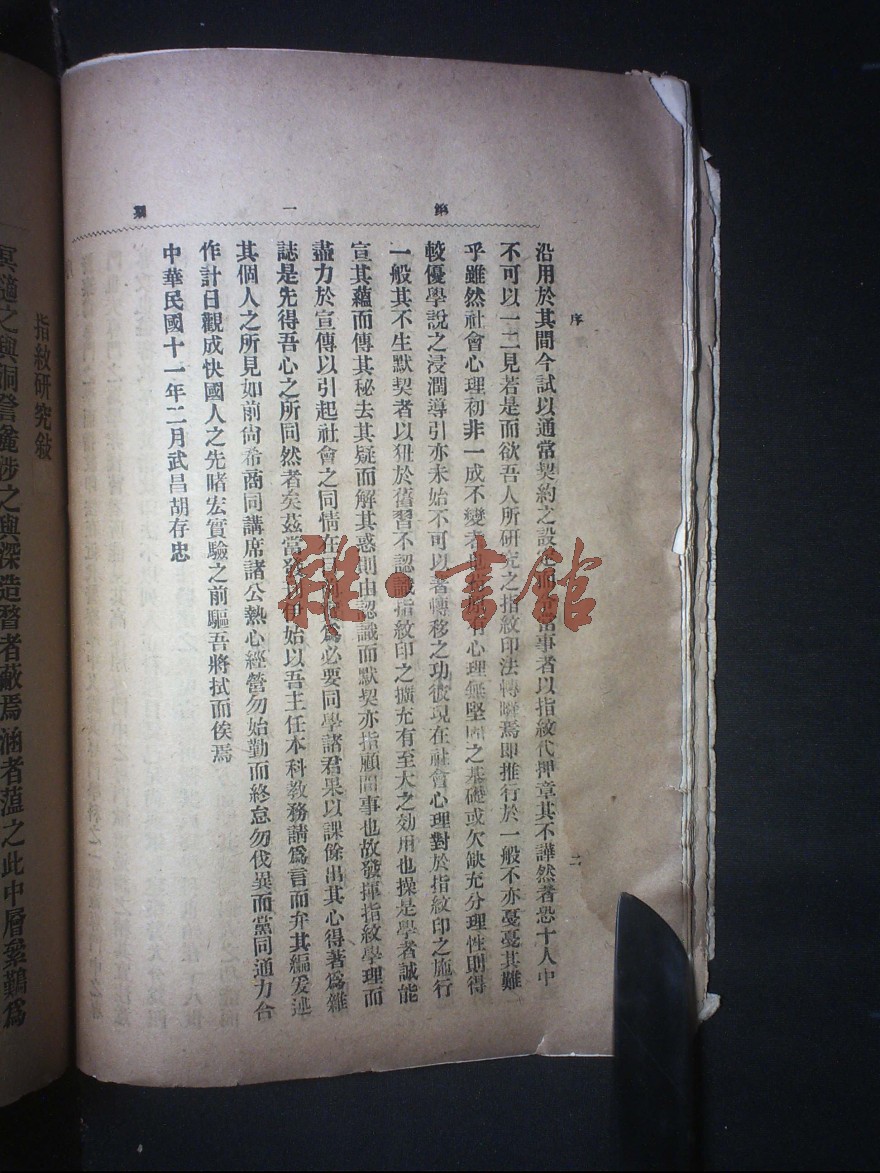 第一期
序
二
沿用於其間今試以通常契約之設定而令當事者以指紋代押章其不譁然者恐十人中
不可以一二見若是而欲吾人所研究之指紋印法轉瞬焉即推行於一般不亦戞戞其難
乎雖然社會心理初非一成不變者也苟原有心理無堅固之基礎或欠缺充分理性則得
較優學說之浸潤導引亦未始不可以著轉移之功彼現在社會心理對於指紋印之施行
一般其不生默契者以狃於舊習不認識指紋印之擴充有至大之効用也操是學者誠能
宣其蘊而傳其秘去其疑而解其惑則由認識而默契亦指顧間事也故發揮指紋學理而
盡力於宣傳以引起社會之同情在目爲必要同學諸君果以課餘出其心得著爲雜
誌是先得吾心之所同然者矣茲當發刊伊始以吾主任本科教務請爲言而弁其編爰述
其個人之所見如前尙希商同講席諸公熱心經營勿始勤而終怠勿伐異而黨同通力合
作計日觀成快國人之先睹宏實驗之前驅吾將拭而俟焉
中華民國十一年二月武昌胡存忠
指紋研究敍
冥隨之與洞詧龕涉之與深造瞀者蔽焉涵者薀之此中層纍鷄爲
雜·書館